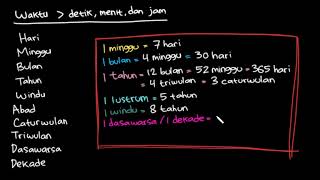 Waktu > detik, menit, dan jam
Hari
Minggu
Bulan
Tahun
Windu
Abad
Caturwulan
Triwulan
Dasawarsa
Dekade
1 minggu = 7 hari
1 bulan = 4 minggu = 30 hari
1 tahun = 12 bulan = 52 minggu = 365 hari
= 4 triwulan = 3 caturwulan
1 lustrum = 5 tahun
1 windu = 8 tahun
1 dasawarsa / 1 dekade =